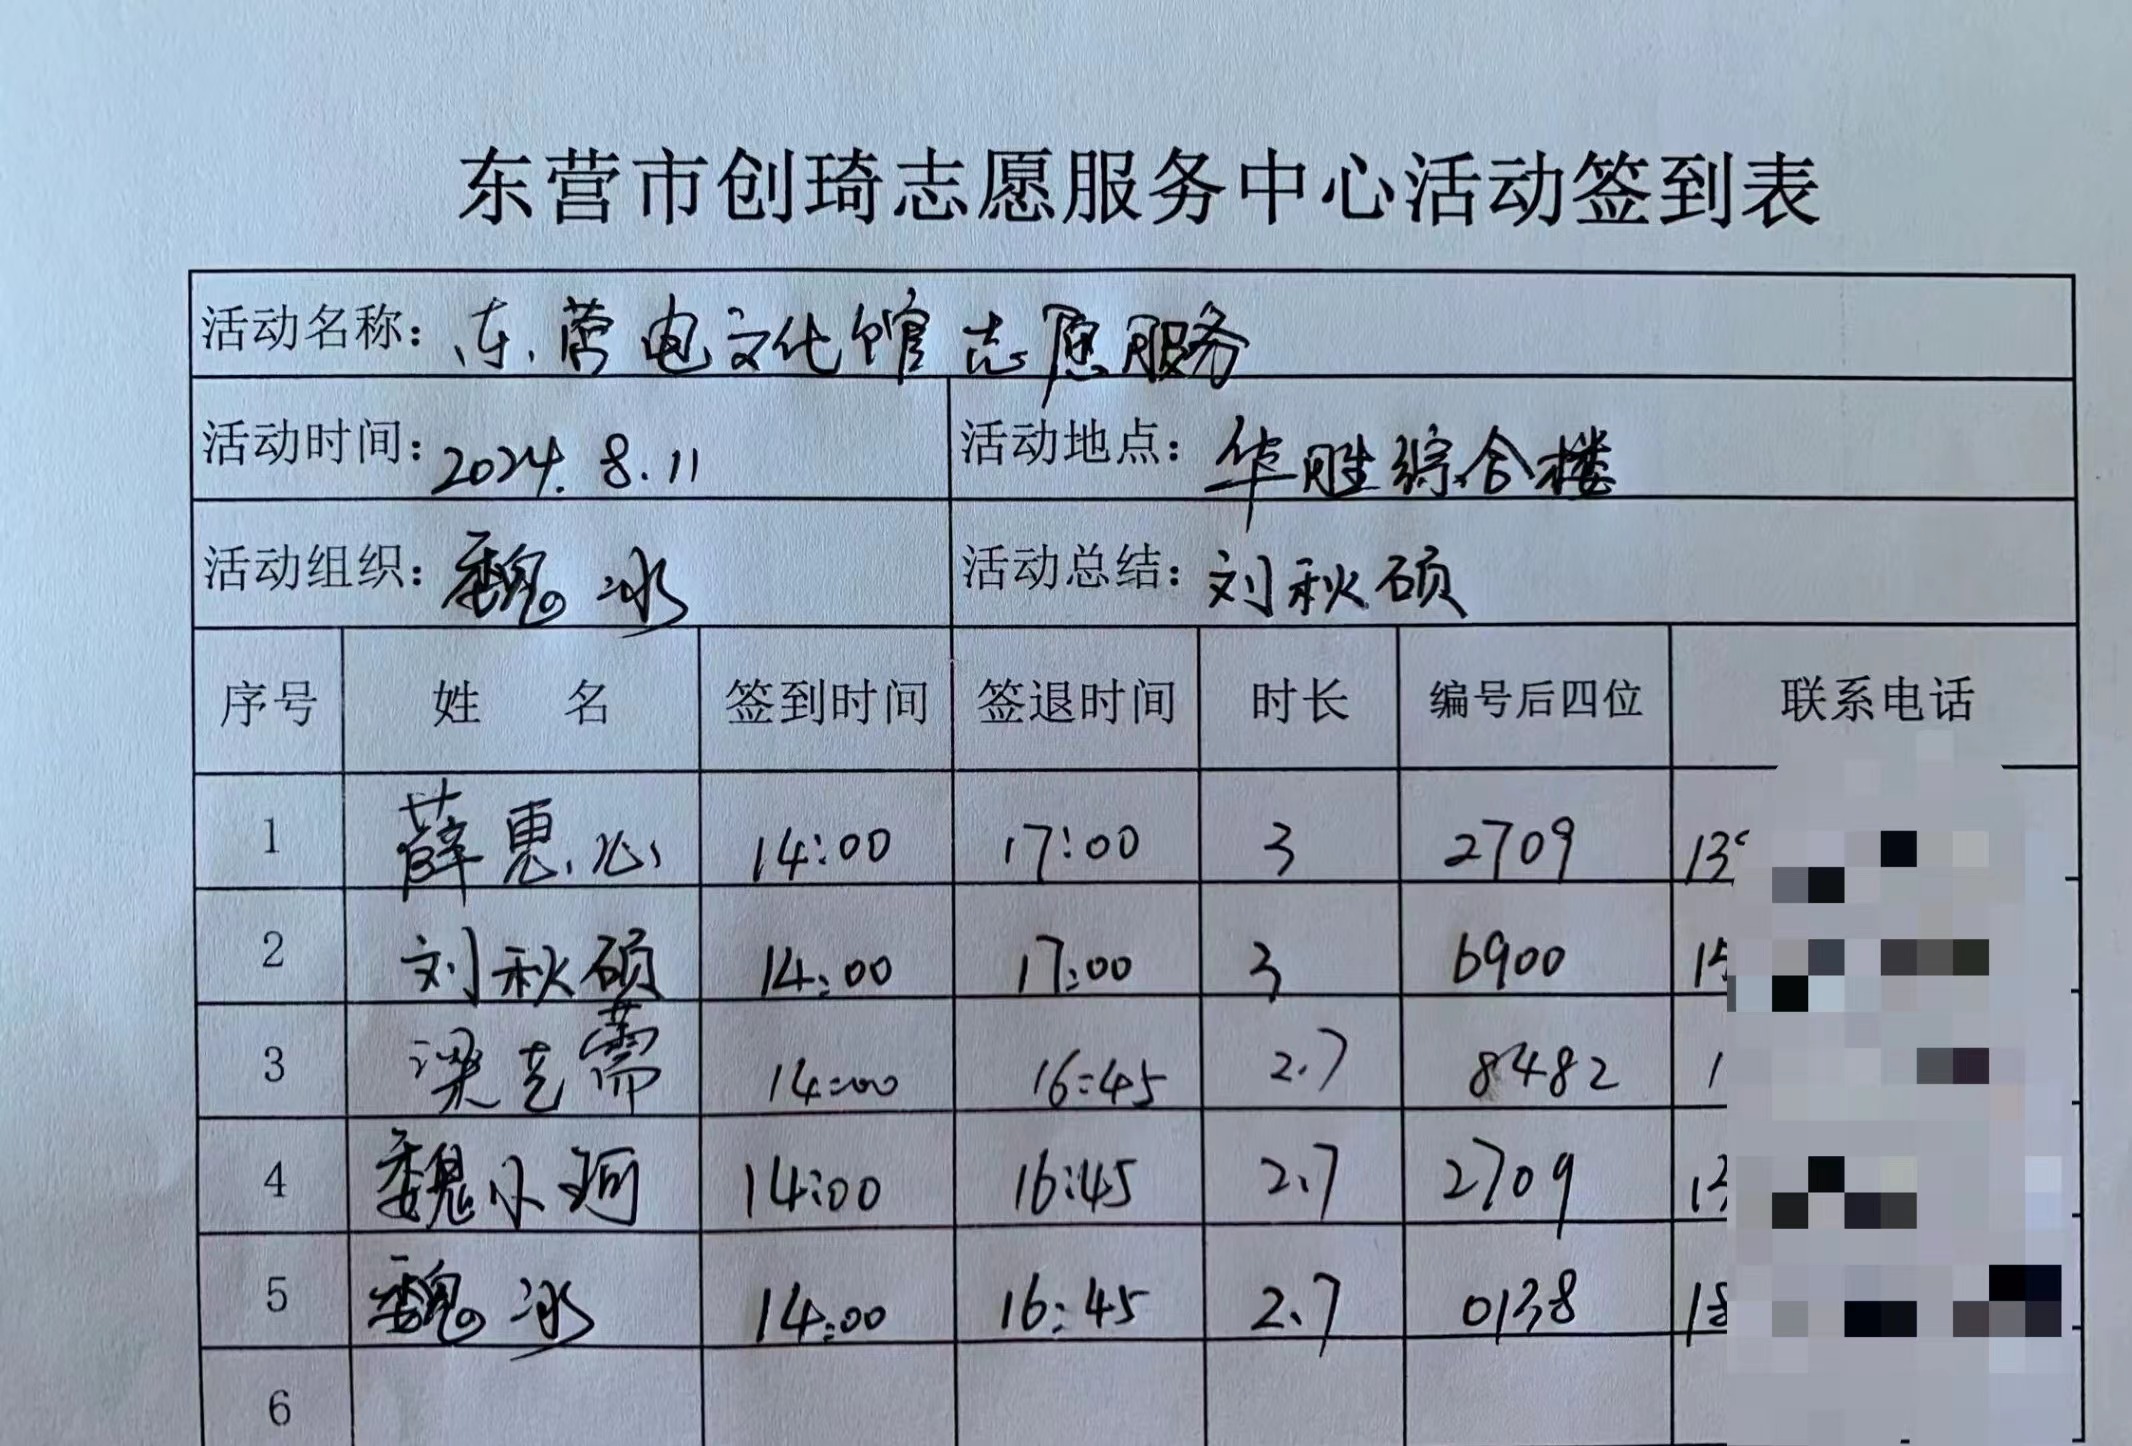 东营市创琦志愿服务中心活动签到表
活动名称：东营电文化馆志愿服务
活动时间：2024.8.11 活动地点：华胜综合楼
活动组织：魏冰 活动总结：刘秋硕
序号 姓名 签到时间 签退时间 时长 编号后四位 联系电话
1 薛惠心 14:00 17:00 3 2709 13
2 刘秋硕 14:00 17:00 3 6900 15
3 梁克薷 14:00 16:45 2.7 8482 1
4 魏小珂 14:00 16:45 2.7 2709 13
5 魏冰 14:00 16:45 2.7 0138 18
6